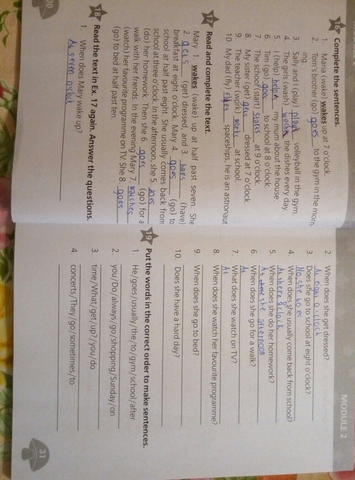 Complete the sentences.
1. Maria (wake) wakes up at 7 o'clock.
2. Tom's brother (go) goes to the gym in the morn-
ing.
3. Sally and I (play) play volleyball in the gym.
4. The girls (wash) the dishes every day.
5. I (help) my mum about the house.
6. Tim (go) goes to school at 8 o'clock.
7. The school (start) starts at 9 o'clock.
8. My sister (get) gets dressed at 7 o'clock.
9. The teacher (work) work at school.
10. My dad (fly) spaceships, he is an astronaut.
17 Read and complete the text.
Mary 1. wakes (wake) up at half past seven. She
2. gets (get) dressed and 3. (have)
breakfast at eight o'clock. Mary 4. goes (go) to
school at half past eight. She usually comes back from
school at three o'clock. In the afternoon, she 5.
(do) her homework. Then she 6. goes (go) for a
walk with her friends. In the evening Mary 7.
(watch) her favourite programme on TV. She 8. goes
(go) to bed at half past ten.
18 Read the text in Ex. 17 again. Answer the questions.
1. When does Mary wake up?
30
MODULE 2
2. When does she get dressed?
3. Does she go to school at eight o'clock?
4. When does she usually come back from school?
5. When does she do her homework?
6. When does she go for a walk?
7. What does she watch on TV?
8. When does she watch her favourite programme?
9. When does she go to bed?
10. Does she have a hard day?
19 Put the words in the correct order to make sentences.
1. He/goes/usually/the/to/gym/school/after
2. you/Do/always/go/shopping/Sunday/on
3. time/What/get/up?/you/do
4. concerts/They/go/sometimes/to
31